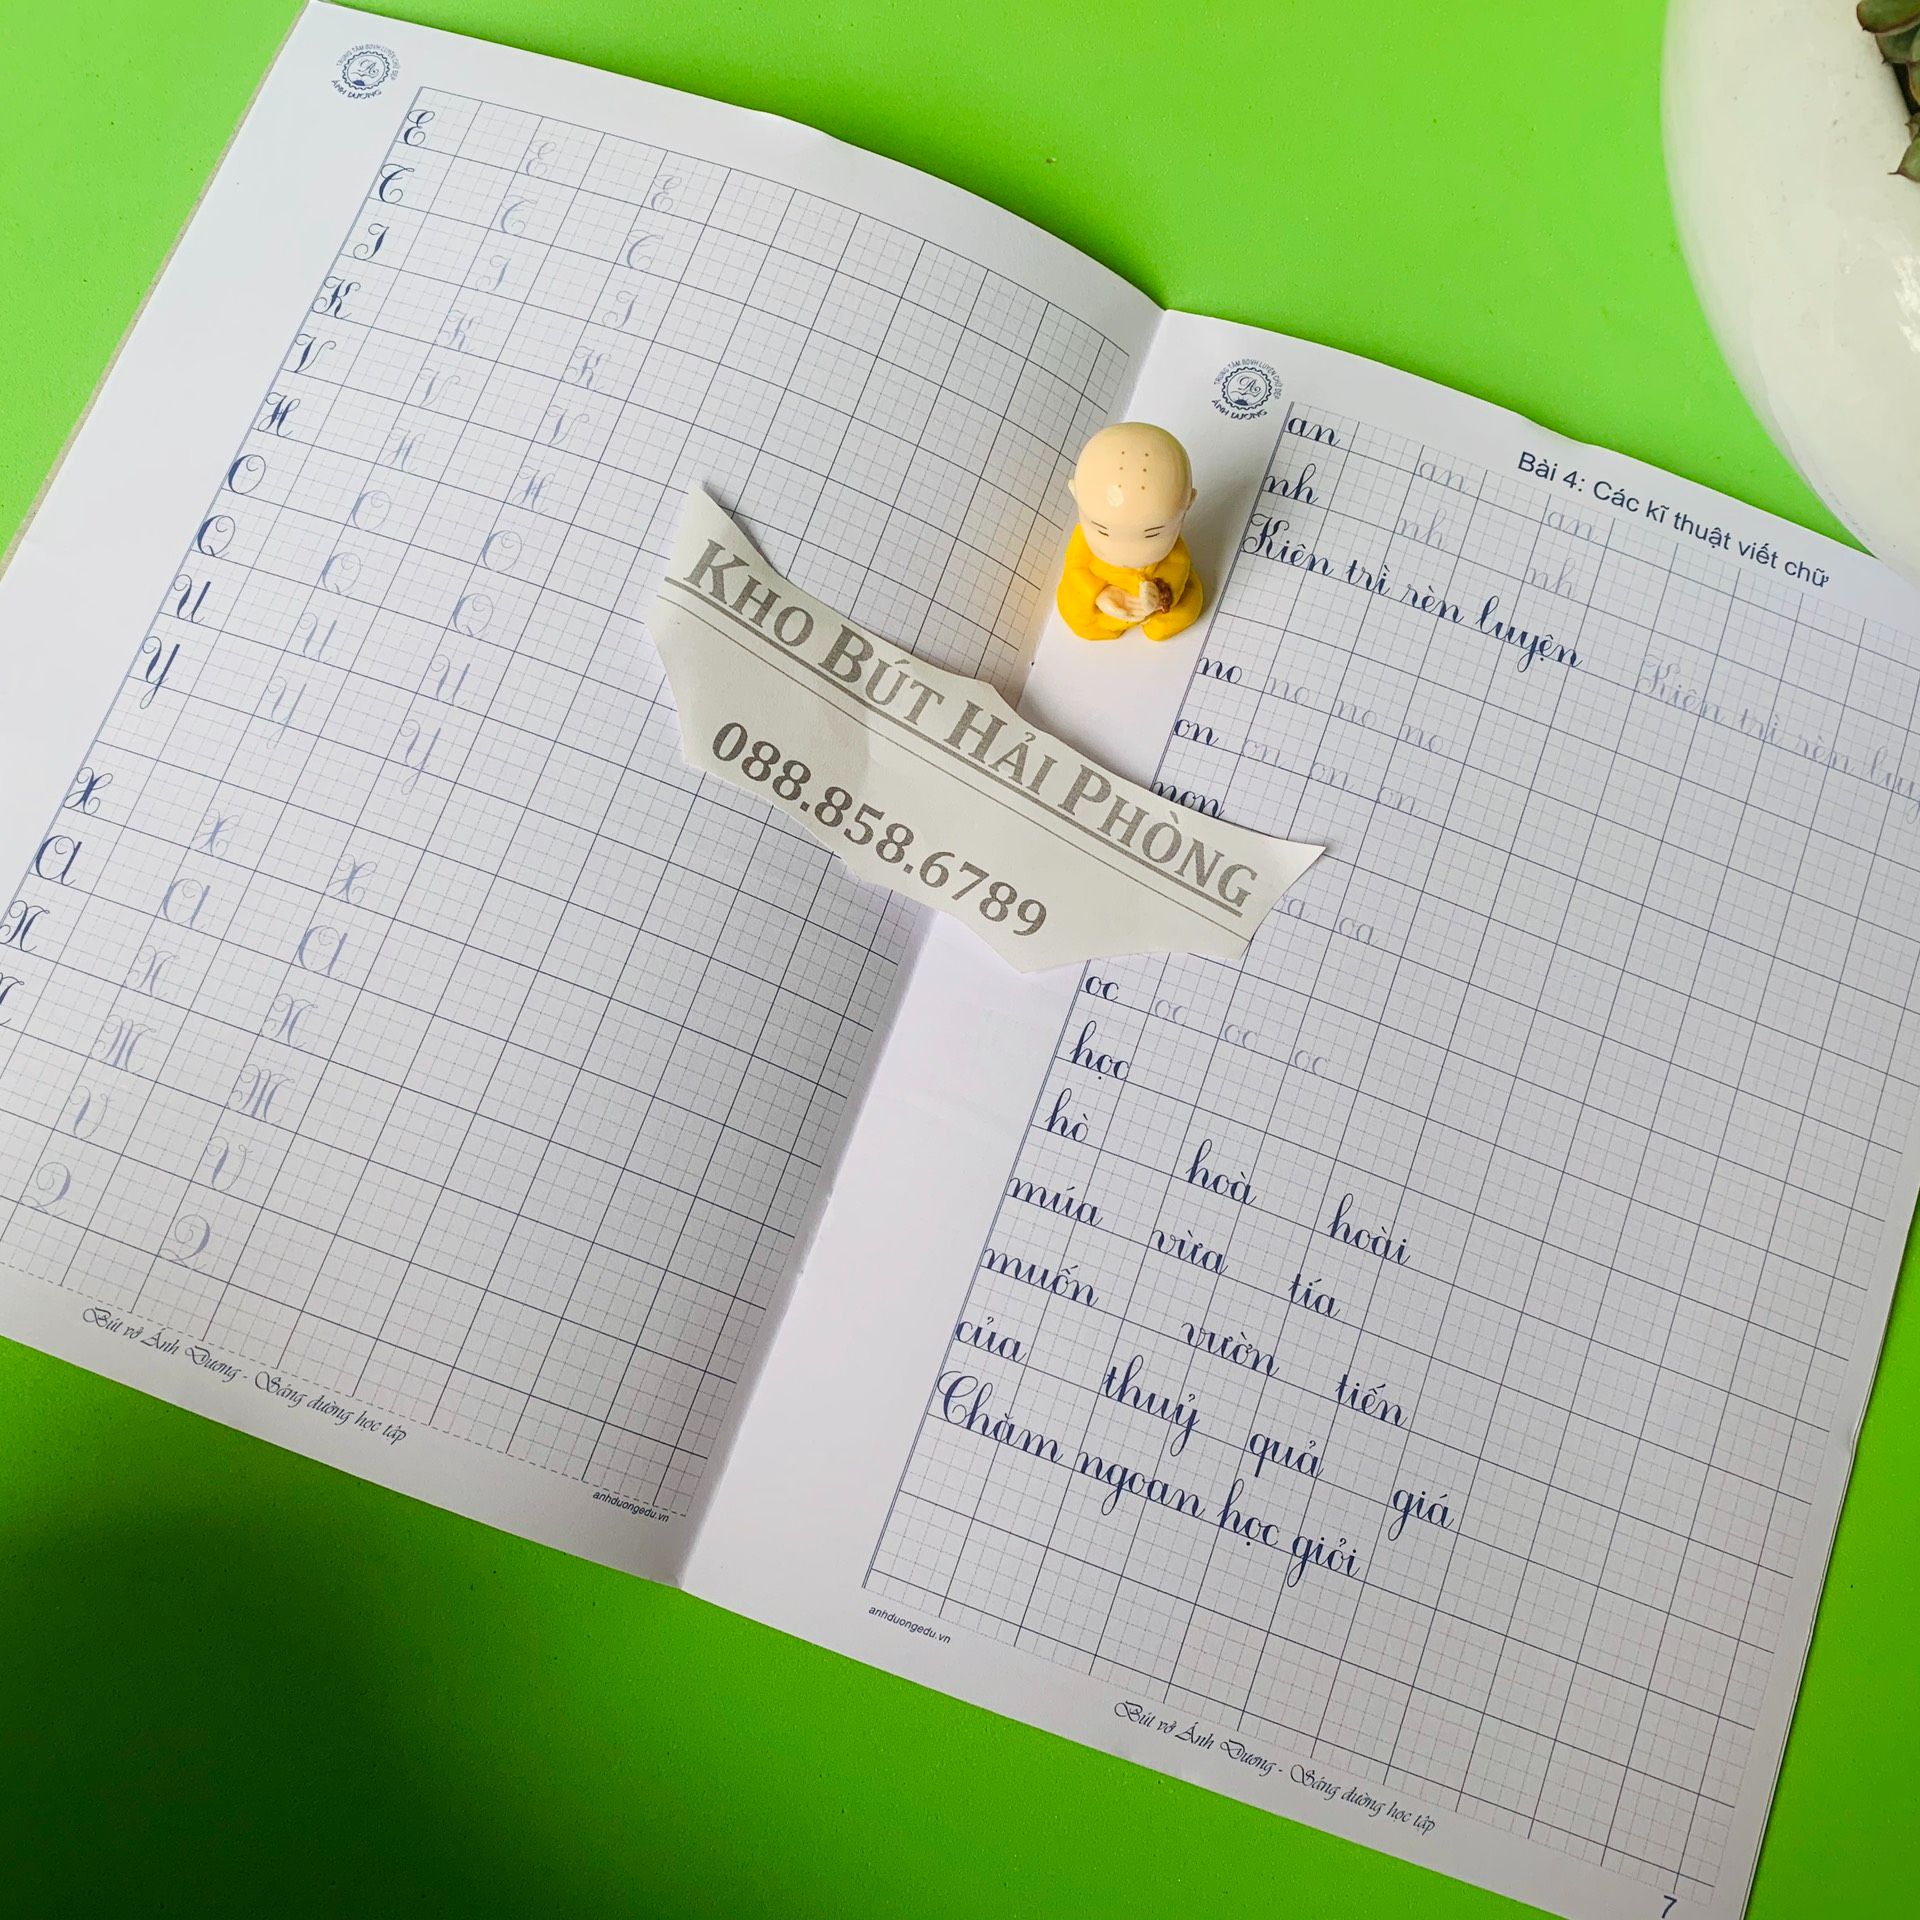 TRUNG TÂM BDVH LUYỆN CHỮ ĐẸP
ÁNH DƯƠNG
E E E
C C C
I I I
K K K
V V V
H H H
O O O
Q Q Q
U U U
Y Y Y
X X X
A A A
N N N
M M
V V
Q Q
Bút vở Ánh Dương - Sáng đường học tập
anhduongedu.vn
KHO BÚT HẢI PHÒNG
088.858.6789
TRUNG TÂM BDVH LUYỆN CHỮ ĐẸP
ÁNH DƯƠNG
Bài 4: Các kĩ thuật viết chữ
an an an
nh nh nh
Kiên trì rèn luyện Kiên trì rèn
no no no no
on on on on
non
ca
oc oc oc oc
học
hò hoà hoài
múa vừa tía
muốn vườn tiến
của thuỷ quả giá
Chăm ngoan học giỏi
anhduongedu.vn
Bút vở Ánh Dương - Sáng đường học tập
7